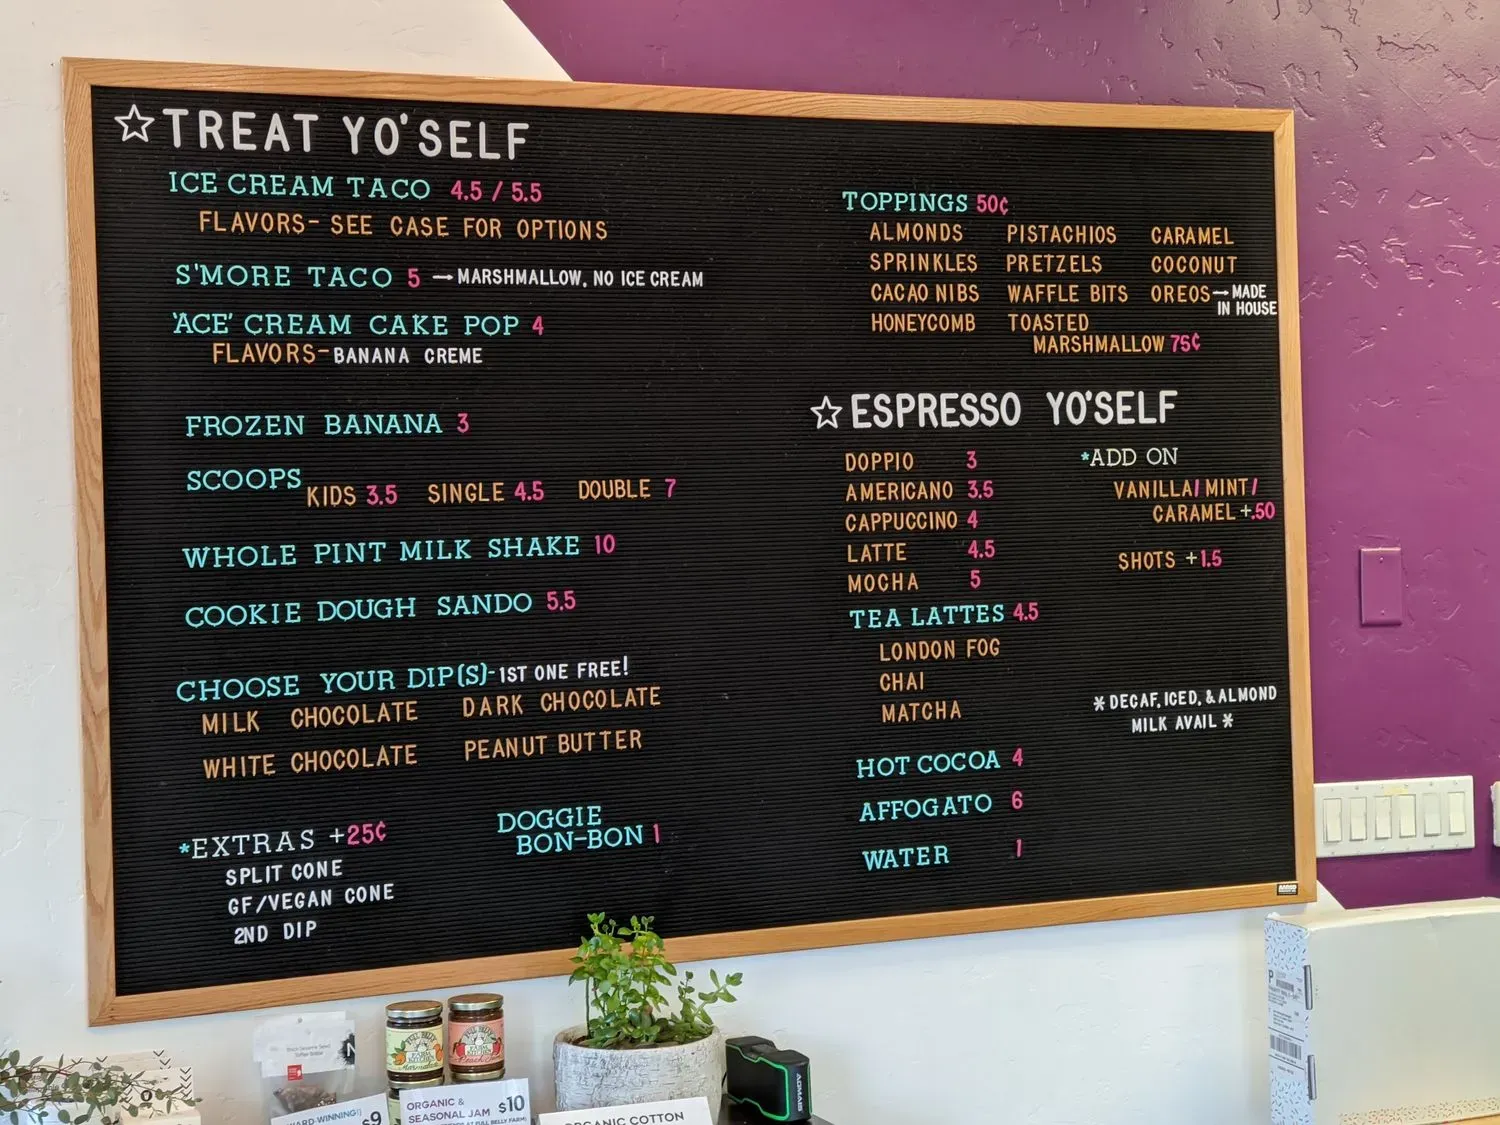 ☆TREAT YO'SELF
ICE CREAM TACO 4.5 / 5.5
FLAVORS- SEE CASE FOR OPTIONS
S'MORE TACO 5 → MARSHMALLOW, NO ICE CREAM
'ACE' CREAM CAKE POP 4
FLAVORS- BANANA CREME
FROZEN BANANA 3
SCOOPS KIDS 3.5 SINGLE 4.5 DOUBLE 7
WHOLE PINT MILK SHAKE 10
COOKIE DOUGH SANDO 5.5
CHOOSE YOUR DIP(S)- 1ST ONE FREE!
MILK CHOCOLATE DARK CHOCOLATE
WHITE CHOCOLATE PEANUT BUTTER
*EXTRAS +25¢
SPLIT CONE
GF/VEGAN CONE
2ND DIP
DOGGIE
BON-BON 1
TOPPINGS 50¢
ALMONDS PISTACHIOS CARAMEL
SPRINKLES PRETZELS COCONUT
CACAO NIBS WAFFLE BITS OREOS → MADE
IN HOUSE
HONEYCOMB TOASTED
MARSHMALLOW 75¢
☆ESPRESSO YO'SELF
DOPPIO 3
AMERICANO 3.5
CAPPUCCINO 4
LATTE 4.5
MOCHA 5
TEA LATTES 4.5
LONDON FOG
CHAI
MATCHA
HOT COCOA 4
AFFOGATO 6
WATER 1
*ADD ON
VANILLA/MINT/
CARAMEL +.50
SHOTS +1.5
* DECAF, ICED, & ALMOND
MILK AVAIL *
FULL BELLY
FARM
KITCHEN
Marmalade
FARM
KITCHEN
Peach Jam
$9
ORGANIC &
SEASONAL JAM $10
AT FULL BELLY FARM)
ORGANIC COTTON
AOMAIS
P